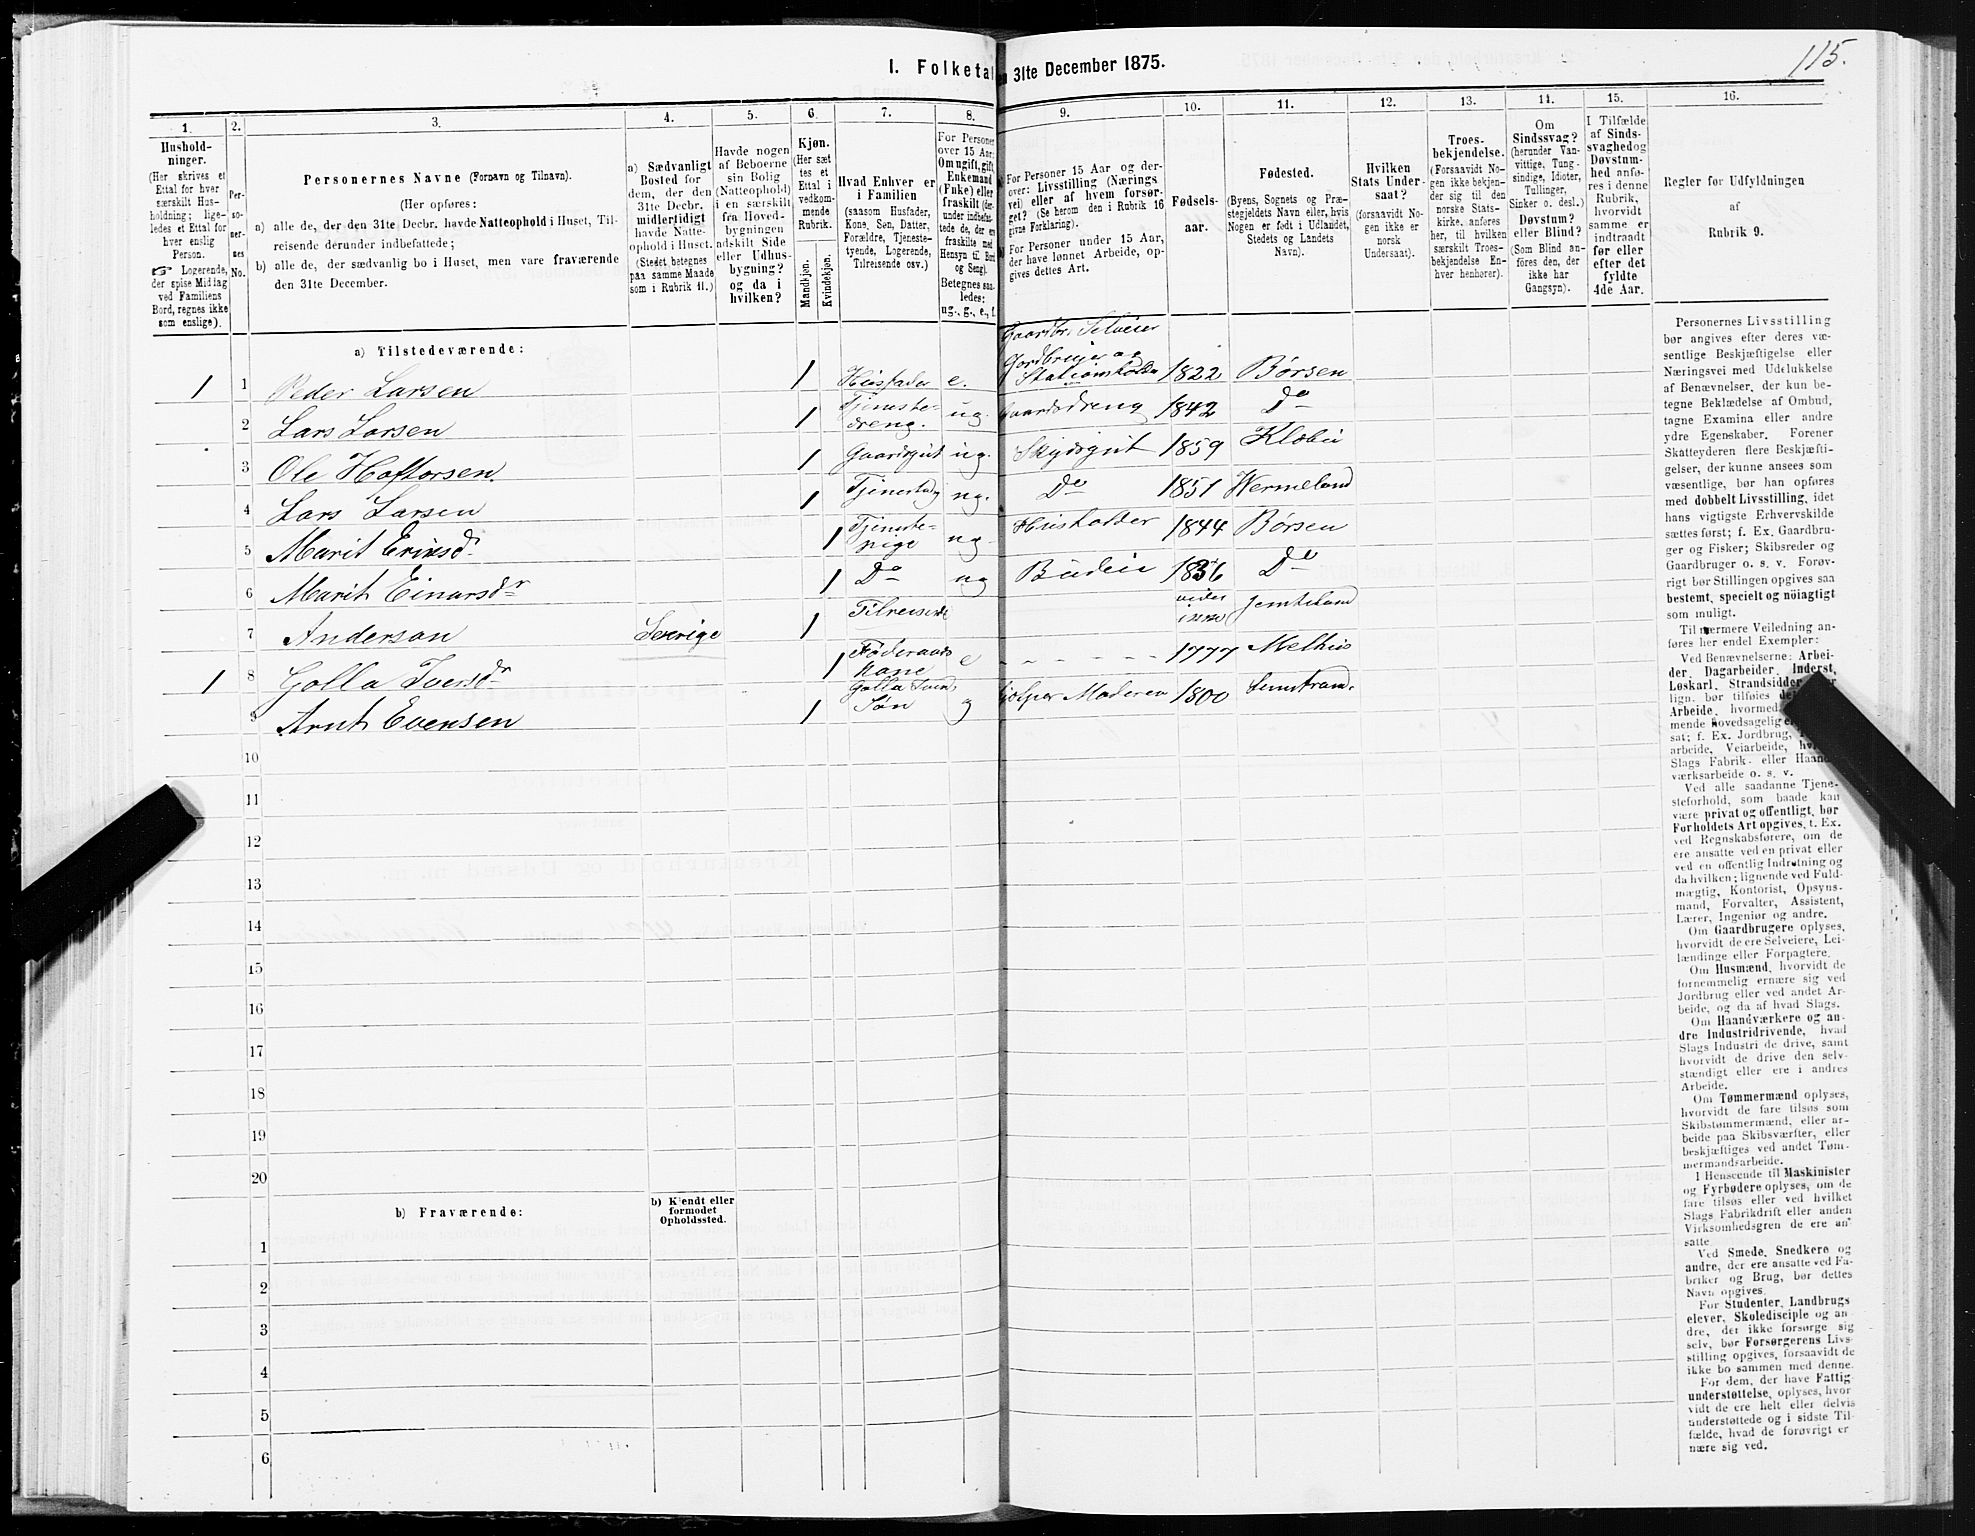 115.
I. Folketal
n 31te December 1875.
1. 2. 3. 4. 5. 6. 7. 8. 9. 10. 11. 12. 13. 14. 15. 16.
Hushold-
ninger.
(Her skrives et
Ettal for hver
særskilt Hus-
holdning; lige-
ledes et Ettal for
hver enslig
Person.
☞ Logerende,
der spise Middag
ved Familiens
Bord, regnes ikke
som enslige).
Per-
so-
ner-
nes
No.
Personernes Navne (Fornavn og Tilnavn).
(Her opføres:
a) alle de, der den 31te Decbr. havde Natteophold i Huset, Til-
reisende derunder indbefattede;
b) alle de, der sædvanlig bo i Huset, men vare fraværende
den 31te December.
a) Sædvanligt
Bosted for
dem, der den
31te Decbr.
midlertidigt
havde Natte-
ophold i Huset.
(Stedet betegnes
paa samme Maade
som i Rubrik 11.)
Havde nogen
af Beboerne
sin Bolig
(Natteophold)
i en særskilt
fra Hoved-
bygningen
adskilt Side
eller Udhus-
bygning?
og da i
hvilken?
Kjøn.
(Her sæt
tes et
Ettal i
vedkom-
mende
Rubrik.
Mandkjøn.
Kvindekjøn.
Hvad Enhver er
i Familien
(saasom Husfader,
Kone, Søn, Datter,
Forældre, Tjeneste-
tyende, Logerende,
Tilreisende osv.)
For Personer
over 15 Aar:
Om ugift, gift,
Enkemand
(Enke) eller
fraskilt (der-
under indbefat-
tede de, der ere
fraskilte med
Hensyn til Bord
og Seng).
Betegnes saa-
ledes:
ug., g., e., f.
For Personer 15 Aar og der-
over: Livsstilling (Nærings
vei) eller af hvem forsør-
get? (Se herom den i Rubrik 16
givne Forklaring).
b) For Personer under 15 Aar,
der have lønnet Arbeide, op-
gives dettes Art.
Fødsels-
aar.
Fødested.
(Byens, Sognets og Præ-
stegjeldets Navn eller, hvis
Nogen er født i Udlandet,
Stedets og Landets
Navn).
Hvilken
Stats Under-
saat?
(forsaavidt No-
gen ikke er
norsk
Undersaat).
Troes-
bekjendelse.
(Forsaavidt No-
gen ikke bekjen-
der sig til den
norske Stats-
kirke, anføres
her, til hvilken
særskilt Troes-
bekjendelse En-
hver henhører).
Om
Sindssvag?
(herunder Van-
vittige, Tung-
sindige, Idioter,
Tullinger,
Sinker o. desl.)
Døvstum?
eller Blind?
(Som Blind an-
føres den, der
ikke har
Gangsyn).
I Tilfælde
af Sinds-
svaghed og
Døvstum-
hed anfø-
res i denne
Rubrik,
hvorvidt
samme er
indtraadt
før eller
efter det
fyldte
4de Aar.
Regler for Udfyldningen
af
Rubrik 9.
a) Tilstedeværende:
1 1 Peder Larsen 1 Husfader e. Gaardbr. Selveier Jordbruger og Stationsholder 1822 Børsen
2 Lars Larsen 1 Tjeneste-dreng. ug. Gaardsdreng 1842 Do
3 Ole Haftorsen. 1 Gaardsgut ug. Skydsgut 1859 Klæbu
4 Lars Larsen 1 ug. Do 1851 Wermeland
5 Marit 1 Tjeneste-pige ug. Husholder 1844 Børsen
6 Marit Einarsdr 1 Do ug Budeie 1836 Do
7 Anderson Sverige 1 Tilreisende Jemteland
1 8 Golla Iversdr 1 Føderaads Kone e - - - - - 1777 Melhus
9 Arnt Evensen 1 Søn g Moderen 1800
10
11
12
13
14
15
16
17
18
19
20
b) Fraværende:
b) Kjendt eller
formodet
Opholdssted.
1
2
3
4
5
6
Personernes Livsstilling
bør angives efter deres væ-
sentlige Beskjæftigelse eller
Næringsvei med Udelukkelse
af Benævnelser, der kun be-
tegne Beklædelse af Ombud,
tagne Examina eller andre
ydre Egenskaber. Forener
Skatteyderen flere Beskjæfti-
gelser, der kunne ansees som
væsentlige, bør han opføres
med dobbelt Livsstilling, idet
hans vigtigste Erhvervskilde
sættes først; f. Ex. Gaardbru-
ger og Fisker; Skibsreder og
Gaardbruger o. s. v. Forøv-
rigt bør Stillingen opgives saa
bestemt, specielt og nöiagtigt
som muligt.
Til nærmere Veiledning an-
føres her endel Exempler:
Ved Benævnelserne: Arbei-
der, Dagarbeider, Inderst,
Løskarl, Strandsidder
lign. bør tilføies
Arbeide, hvormed
mende hovedsagelig
sat; f. Ex. Jordbrug,
arbeide, Veiarbeide,
Slags Fabrik- eller Haand-
værksarbeide o. s. v.
Ved alle saadanne Tjene-
steforhold, som baade kan
være privat og offentligt, bør
Forholdets Art opgives, t. Ex.
ved Regnskabsførere, om de
ere ansatte ved en privat eller
ved en offentlig Indretning og
da hvilken; lignende ved Fuld-
mægtig, Kontorist, Opsyns-
mand, Forvalter, Assistent,
Lærer, Ingeniør og andre.
Om Gaardbrugere oplyses,
hvorvidt de ere Selveiere, Lei-
lændinge eller Forpagtere.
Om Husmænd, hvorvidt de
fornemmelig ernære sig ved
Jordbrug eller ved andet Ar-
beide, og da af hvad Slags.
Om Haandværkere og an-
dre Industridrivende, hvad
Slags Industri de drive, samt
hvorvidt de drive den selv-
stændigt eller ere i andres
Arbeide.
Om Tømmermænd oplyses,
hvorvidt de fare tilsøs som
Skibstømmermænd, eller ar-
beide paa Skibsværfter, eller
beskjæftiges ved andet Tøm-
mermandsarbeide.
I Henseende til Maskinister
og Fyrbødere oplyses, om de
fare tilsøs eller ved hvilket
Slags Fabrikdrift eller anden
Virksomhedsgren de ere an-
satte.
Ved Smede, Snedkere og
andre, der ere ansatte ved Fa-
briker og Brug, bør dettes
Navn opgives.
For Studenter, Landbrugs
elever, Skoledisciple og an-
dre, der ikke forsørge sig
selv, bør Forsørgerens Livs-
stilling opgives, forsaavidt de
ikke bo sammen med denne.
For dem, der have Fattig-
understøttelse, oplyses, hvor
vidt de ere helt eller delvis
understøttede og i sidste Til-
fælde, hvad de forøvrigt er
nære sig ved.